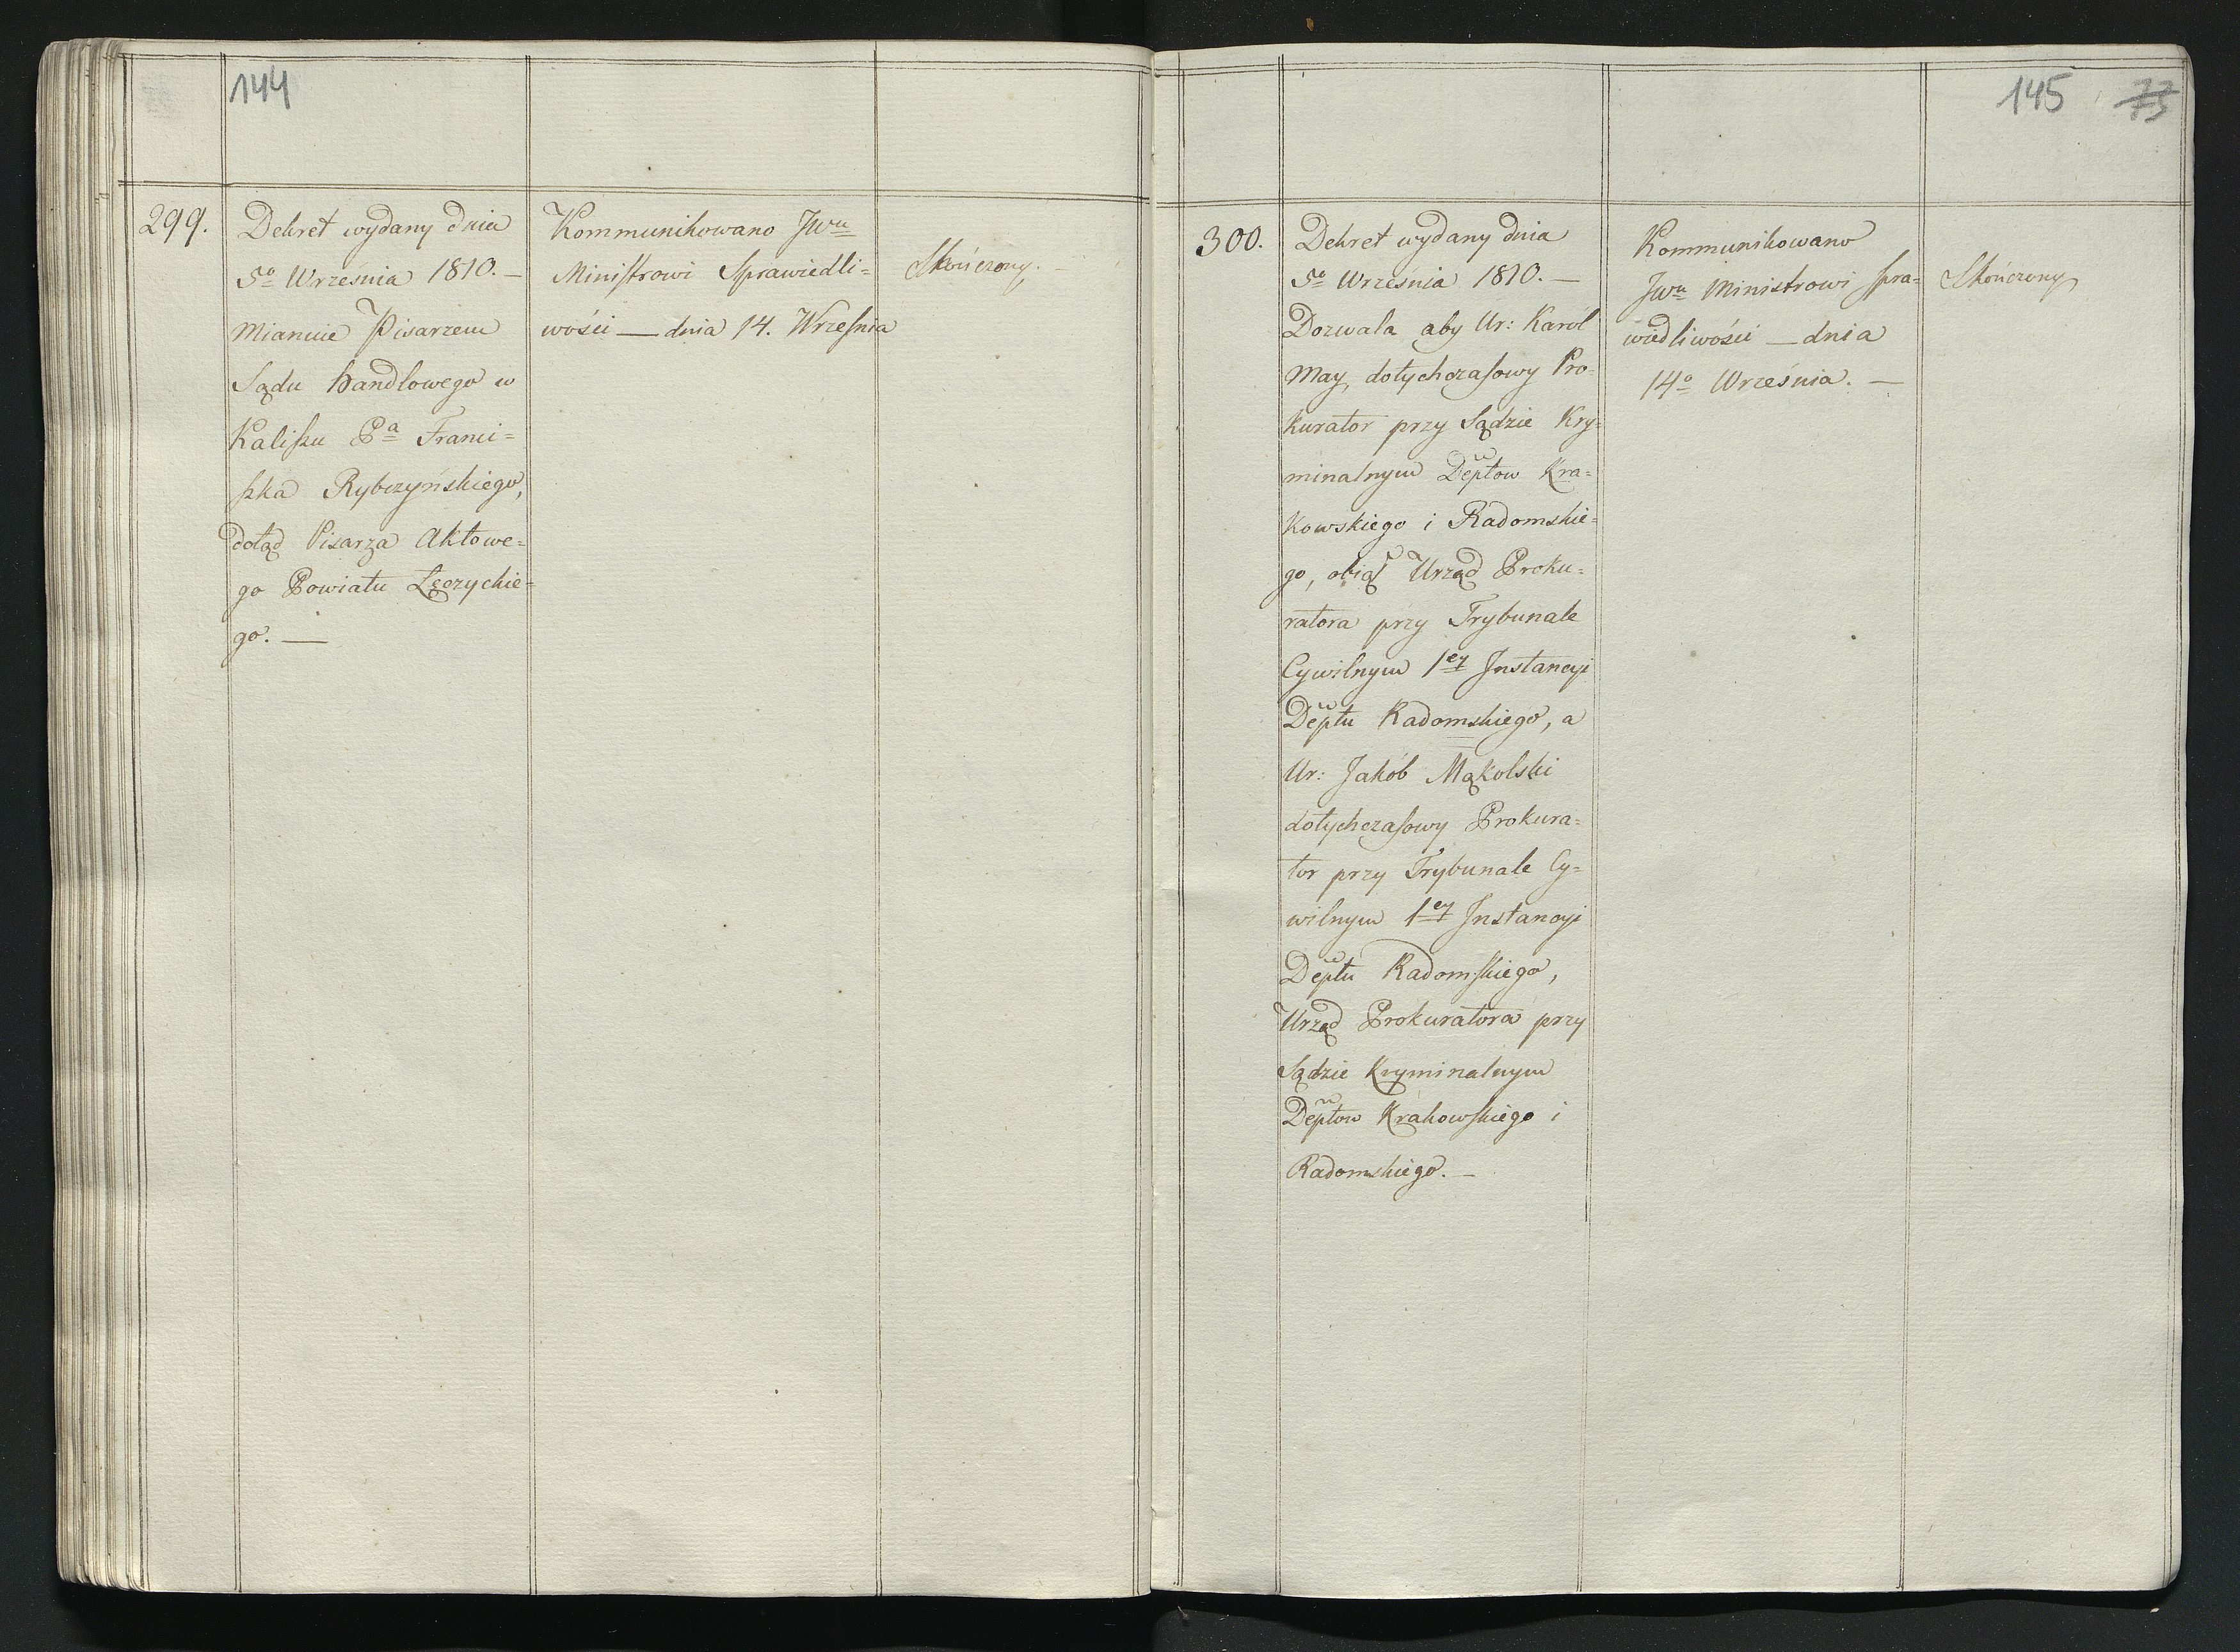 144
299.
Dekret wydany dnia
5º Września 1810. —
Mianuie Pisarzem
Sądu handlowego w
Kaliſzu Pª Franci=
ſzka Rybczyńskiego,
dotąd Pisarza Aktowe=
go Powiatu Łęczyckie=
go. —
Kommunikowano JWu
Miniſtrowi Sprawiedli=
wości — dnia 14. Wrzeſnia
Skończony. —
145 77
75
300.
Dekret wydany dnia
5º Września 1810. —
Dozwala aby Ur: Karól
May, dotychczaſowy Pro=
kurator przy Sądzie Kry=
minalnym Deptow Kra=
kowskiego i Radomskie=
go, obiął Urząd Proku=
ratora przy Trybunale
Cywilnym 1ey Instancyi
Deptu Radomskiego, a
Ur: Jakób Mąkolski
dotychczaſowy Prokura=
tor przy Trybunale Cy=
wilnym 1ey Instancyi
Deptu Radomſkiego,
Urząd Prokuratora przy
Sądzie Kryminalnym
Deptow Krakowſkiego i
Radomskiego. —
Kommunikowano
JWu Ministrowi ſpra=
wiedliwości — dnia
14º Września. —
Skończony